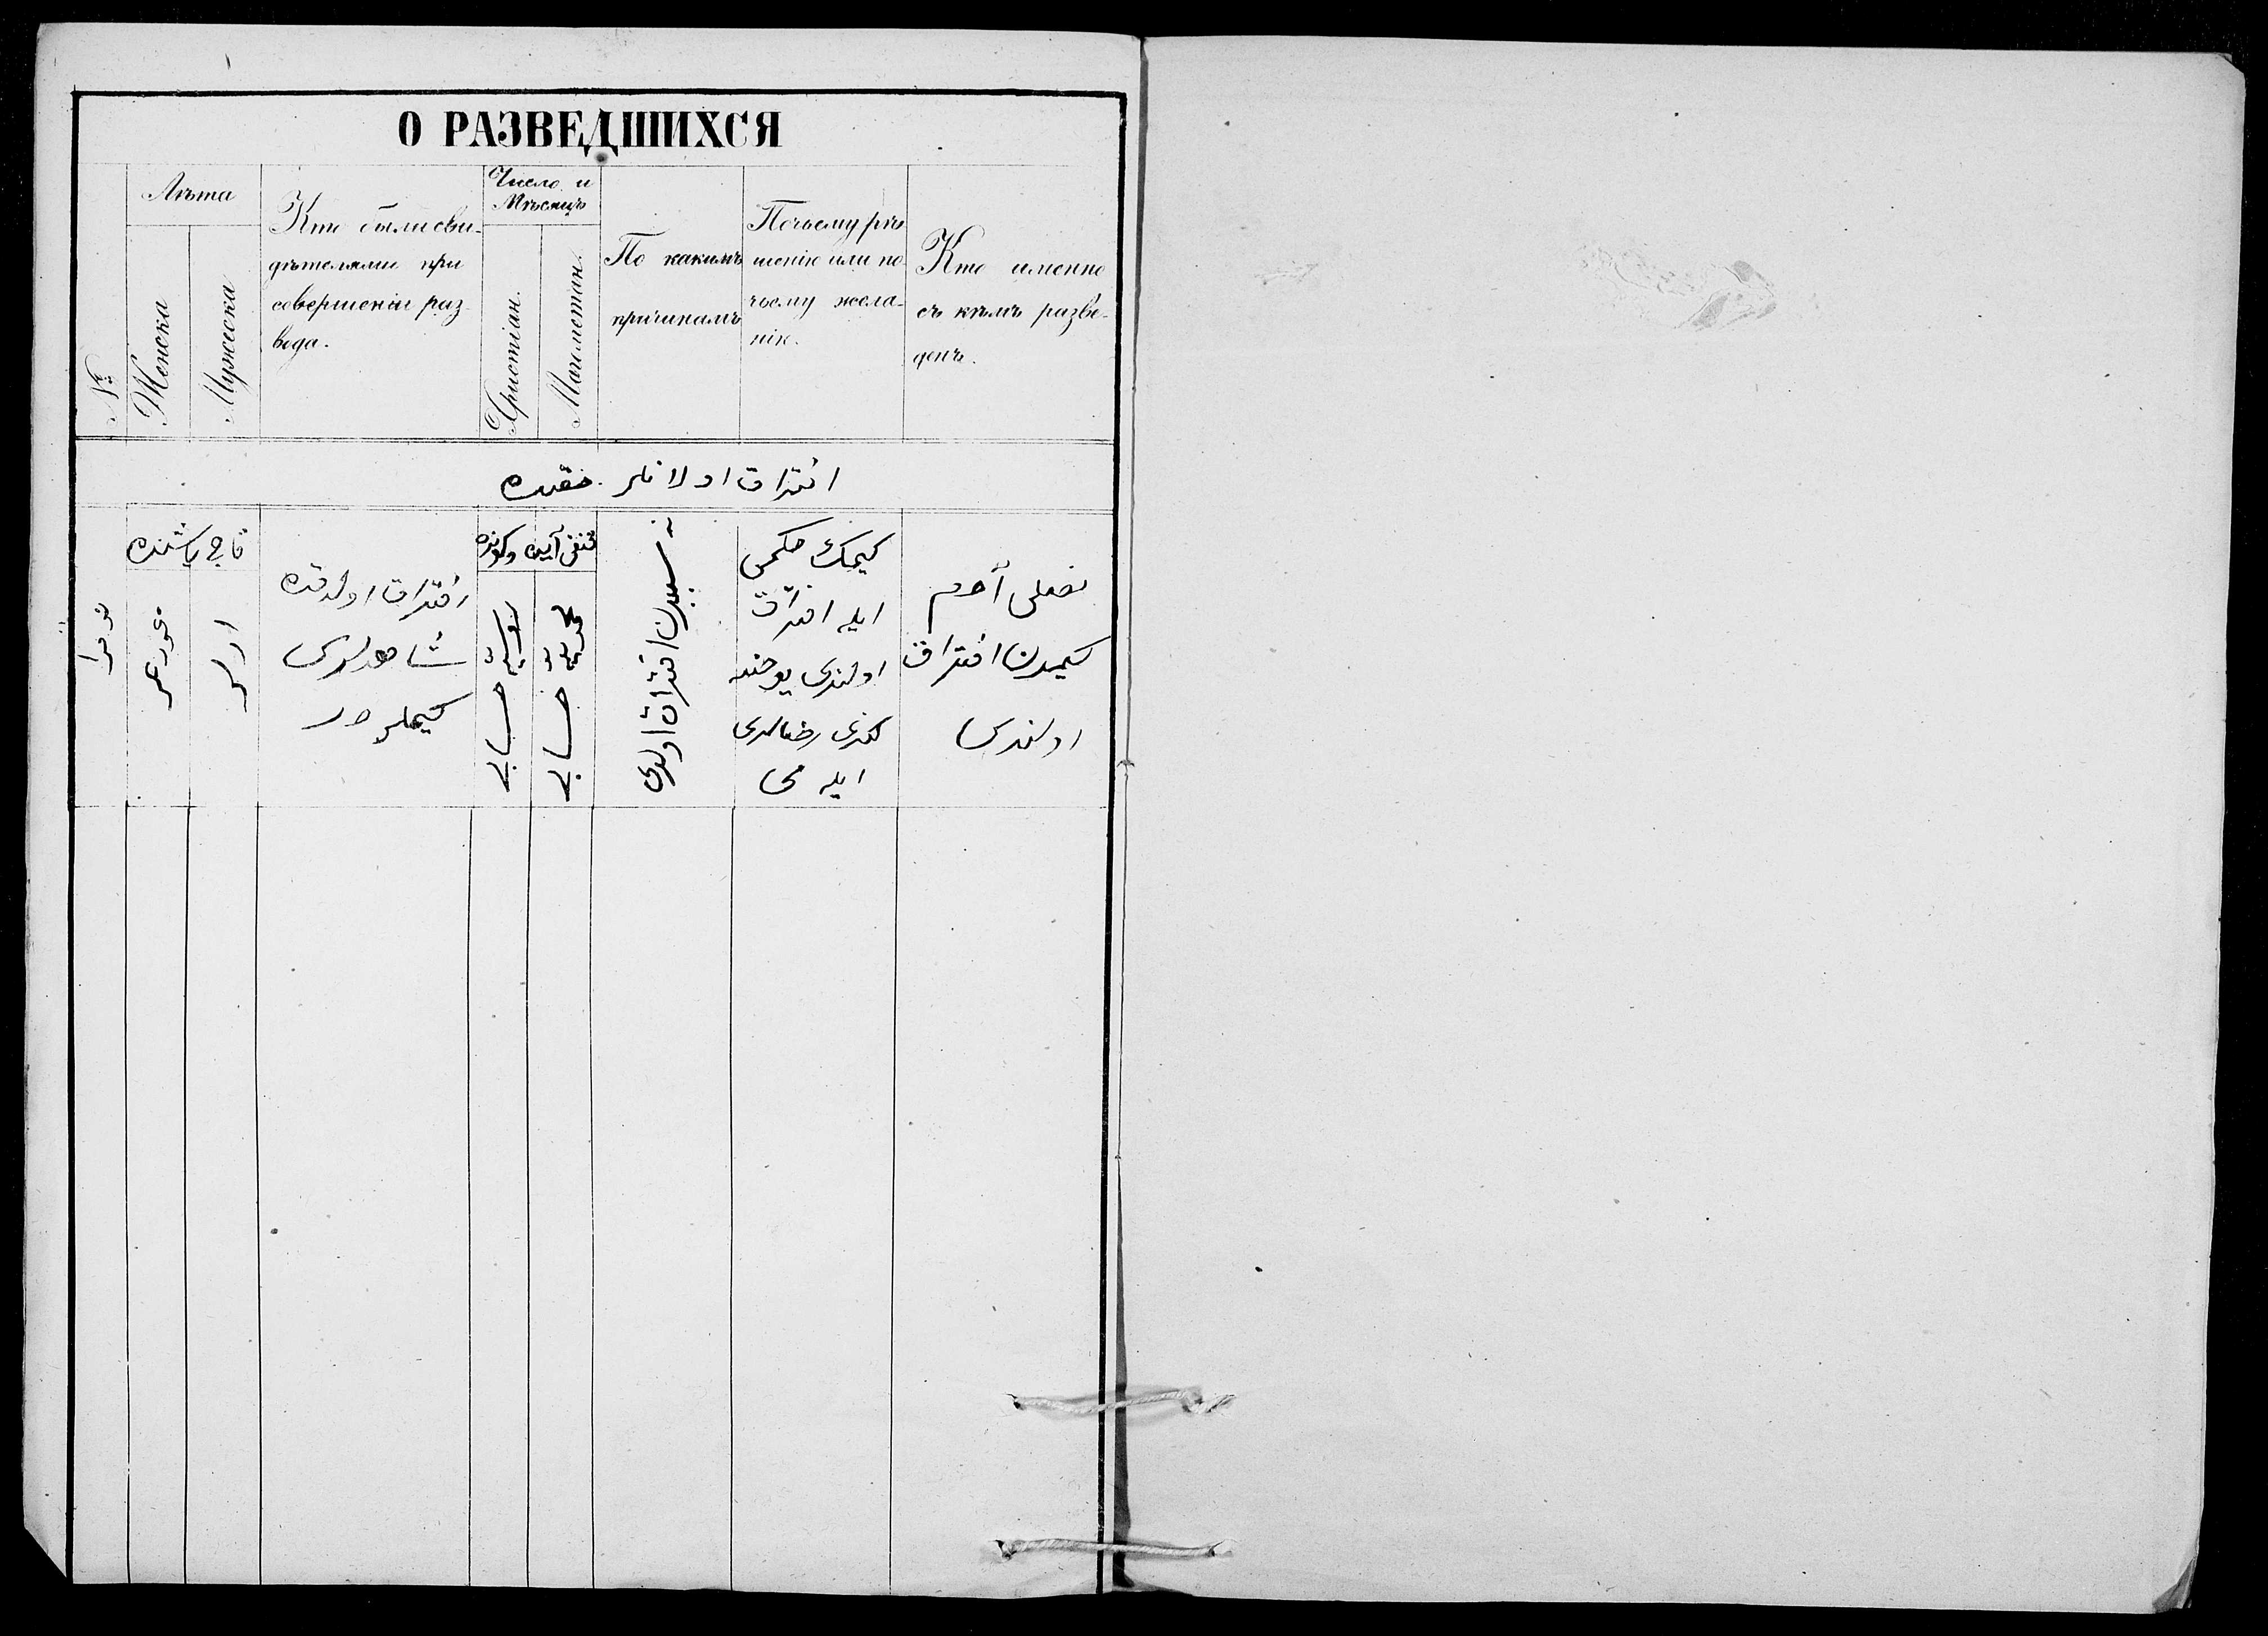 О РАЗВЕДШИХСЯ
№
Лѣта
Женска
Мужеска
Кто были сви-
дѣтелями при
совершеніи раз-
вода.
Число и
Мѣсяцъ
Христіан.
Магометан.
По какимъ
причинамъ
Почьему рѣ-
шенію или по
чьему жела-
нію.
Кто именно
съ кѣмъ разве-
денъ.
افتراق اولانلر حقنده
نومرا
قاچ یاشنده
عورتلر
ارلر
افتراق اولدقده
شاهدلری
کیملر در
قنغی آیده وکونده
روسیّه حسابی
محمدیّه حسابی
نه سببدن افتراق اولندی
کیمک حکمی
ایله افتراق
اولندی یوخسه
کندی رضالری
ایله می
نصلی آدم
کیمدن افتراق
اولندی